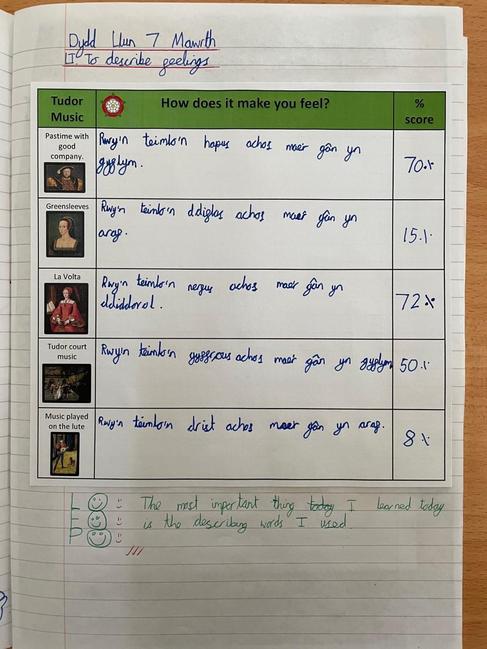 Dydd Llun 7 Mawrth
LI: To describe feelings
Tudor
Music
How does it make you feel?
%
score
Pastime with
good
company.
Rwy'n teimlo'n hapus achos mae'r gân yn
gyflym.
70%
Greensleeves
Rwy'n teimlo'n ddiflas achos mae'r gân yn
araf.
15%
La Volta
Rwy'n teimlo'n nerfus achos mae'r gân yn
ddiddorol.
72%
Tudor court
music
Rwy'n teimlo'n gyffrous achos mae'r gân yn gyflym
50%
Music played
on the lute
Rwy'n teimlo'n drist achos mae'r gân yn araf.
8%
L
E
P
The most important thing today I learned today
is the describing words I used.